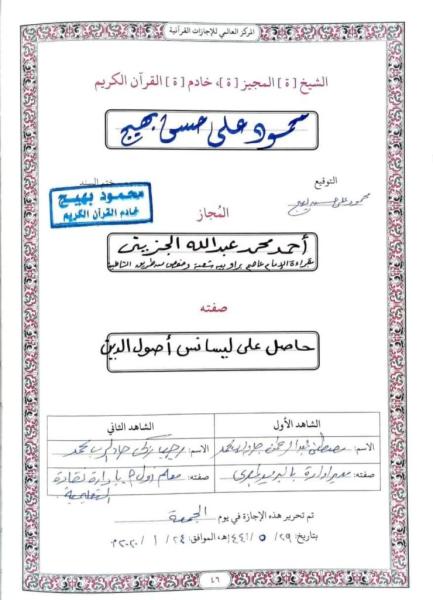 المركز العالمي للإجازات القرآنية
الشيخ [ة] المجيز [ة]، خادم [ة] القرآن الكريم
محمود علي حسن بهيج
التوقيع
ختم السند
محمود علي حسن بهيج
محمود بهيج
خادم القرآن الكريم
المُجاز
أحمد محمد عبدالله الجزيتي
بقراءة الإمام عاصم براوييه شعبة وحفص من طريق الشاطبية
صفته
حاصل على ليسانس أصول الدين
الشاهد الأول
الشاهد الثاني
الاسم: مصطفى عبدالرحمن محمد
الاسم: زكي جاد الرب محمد
صفته: مدير إدارة
صفته: معلم أول بإدارة نقادة
التعليمية
تم تحرير هذه الإجازة في يوم الجمعة
بتاريخ: ٢٩/ ٥ /١٤٤١هـ، الموافق: ٢٤/ ١ /٢٠٢٠م
٤٦